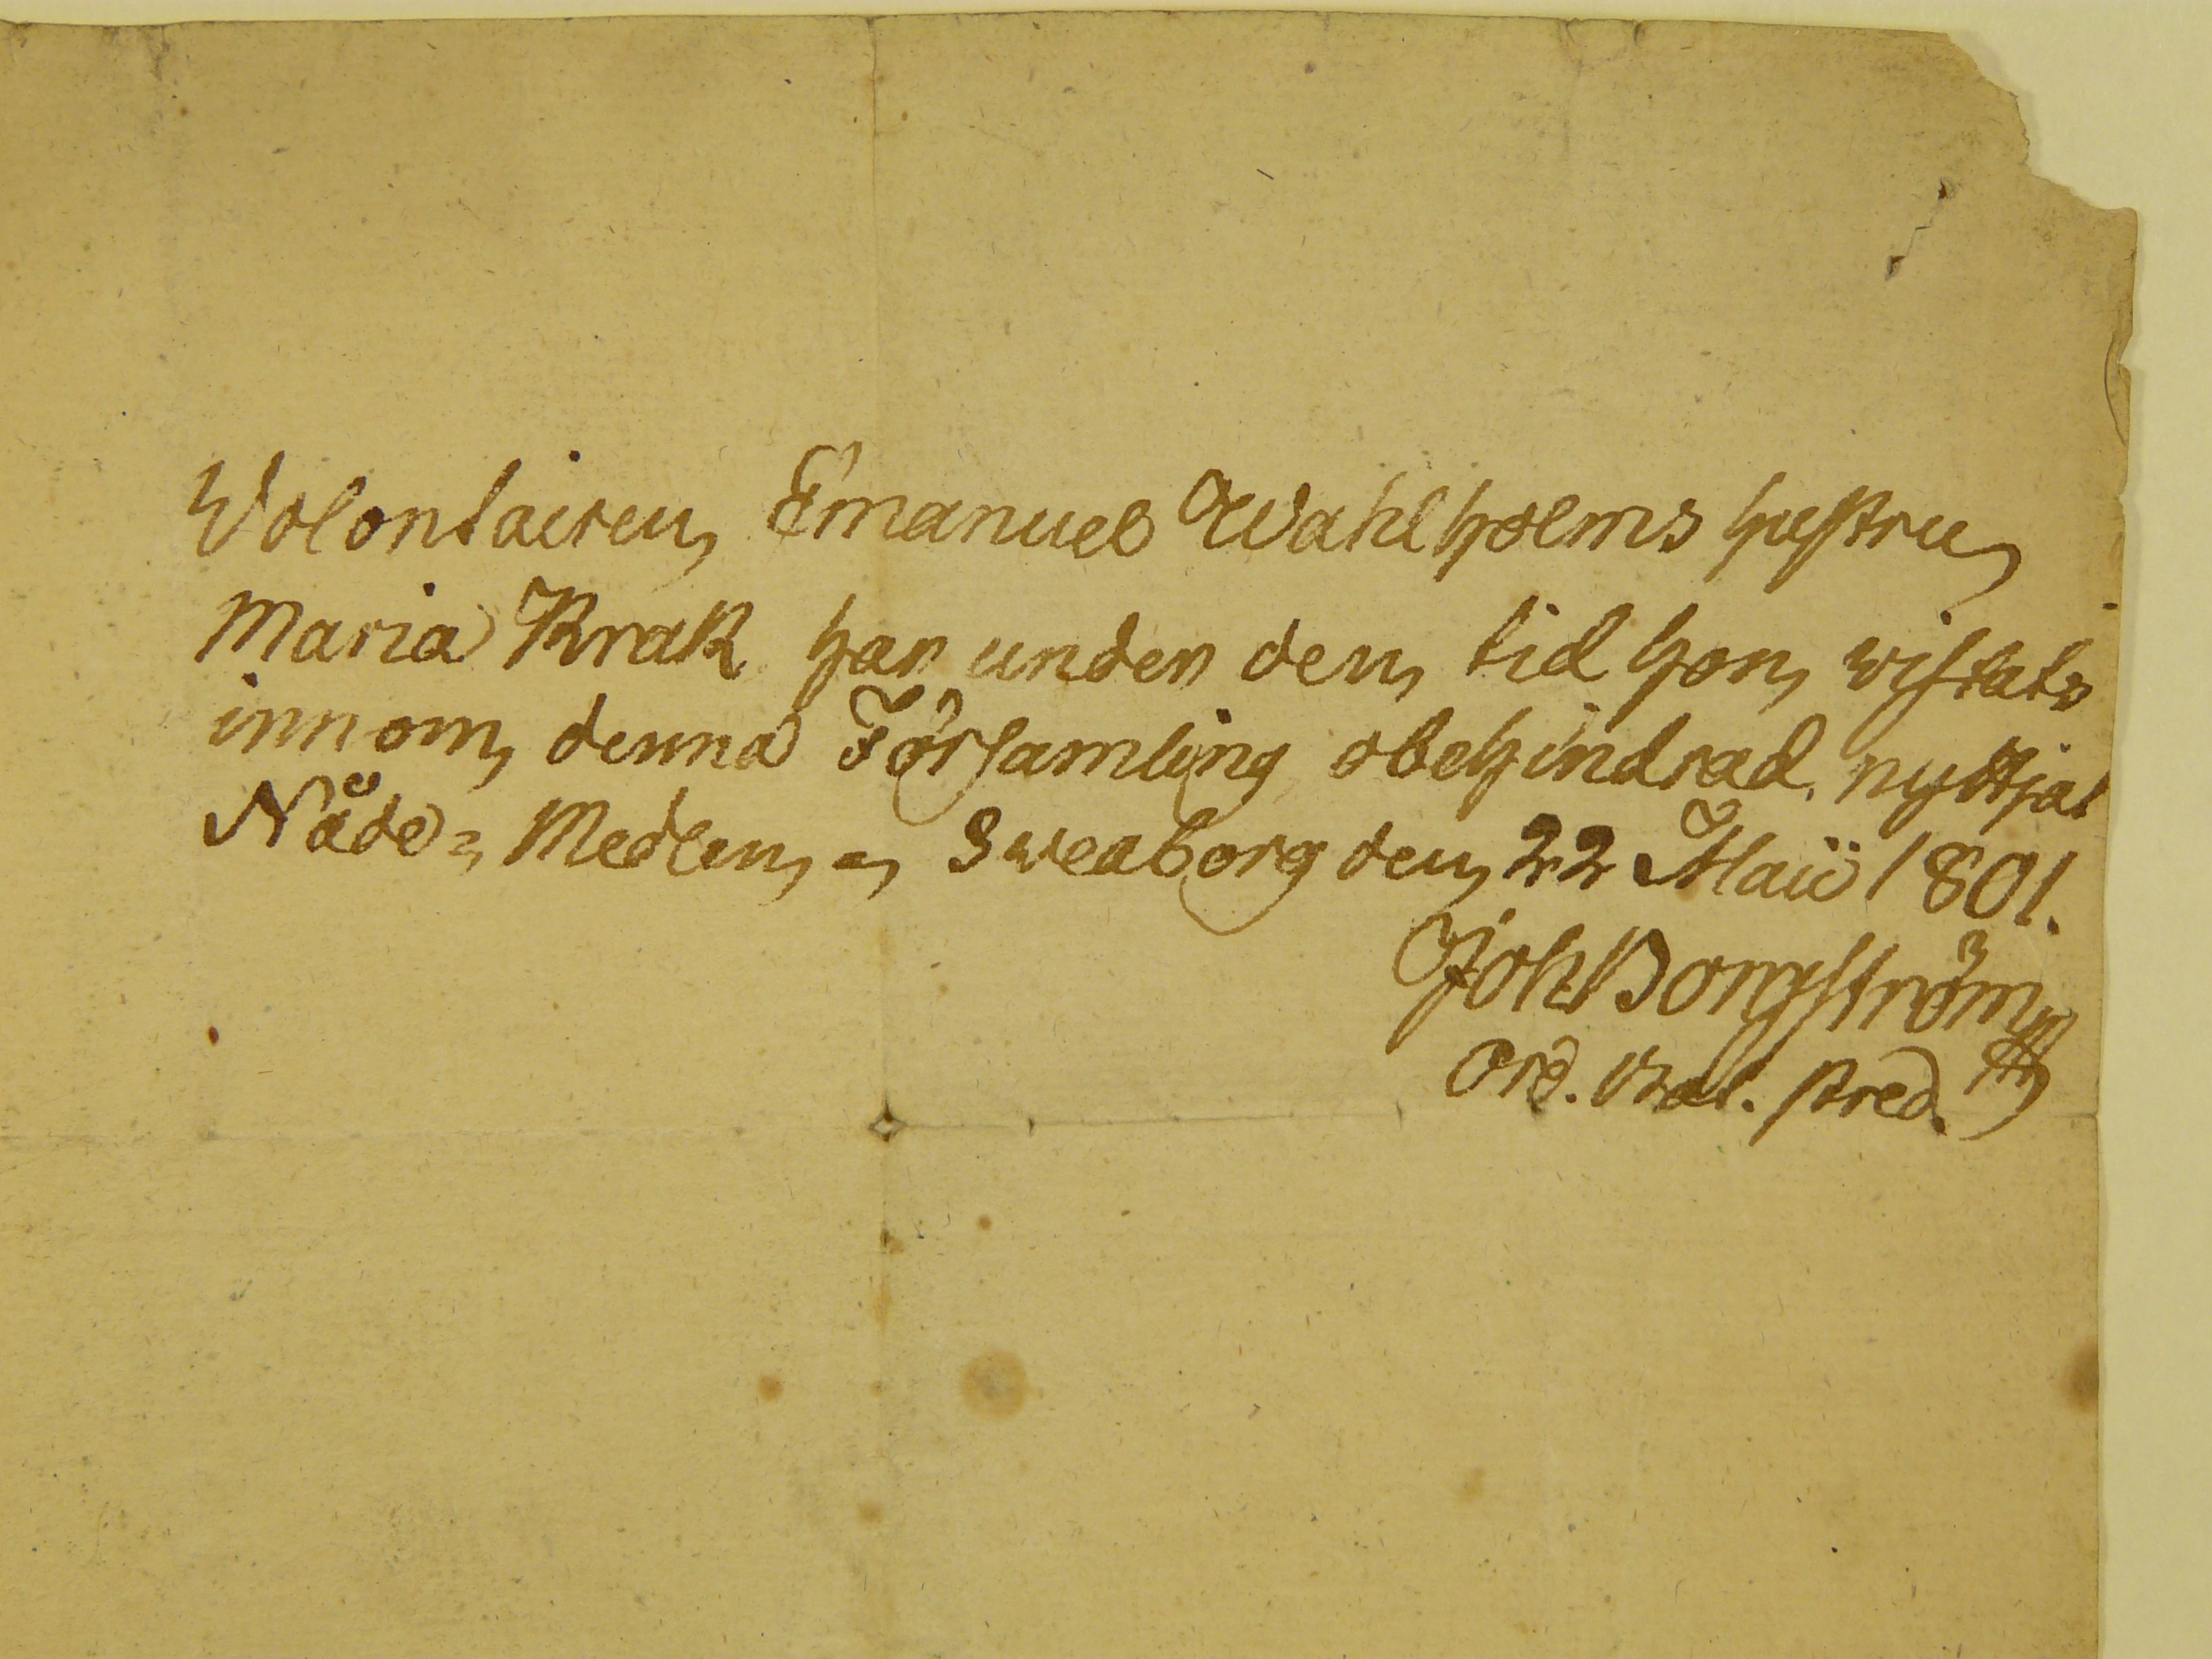 Volontairen Emanuel Wahlholms hustru
Maria Krak har under den tid hon wistats
innom denna Församling obehindrad nyttjat
Nåde= Medlen =, Sweaborg den 22 Maii 1801.
Joh Borgström
Ord. Bat. Pred.